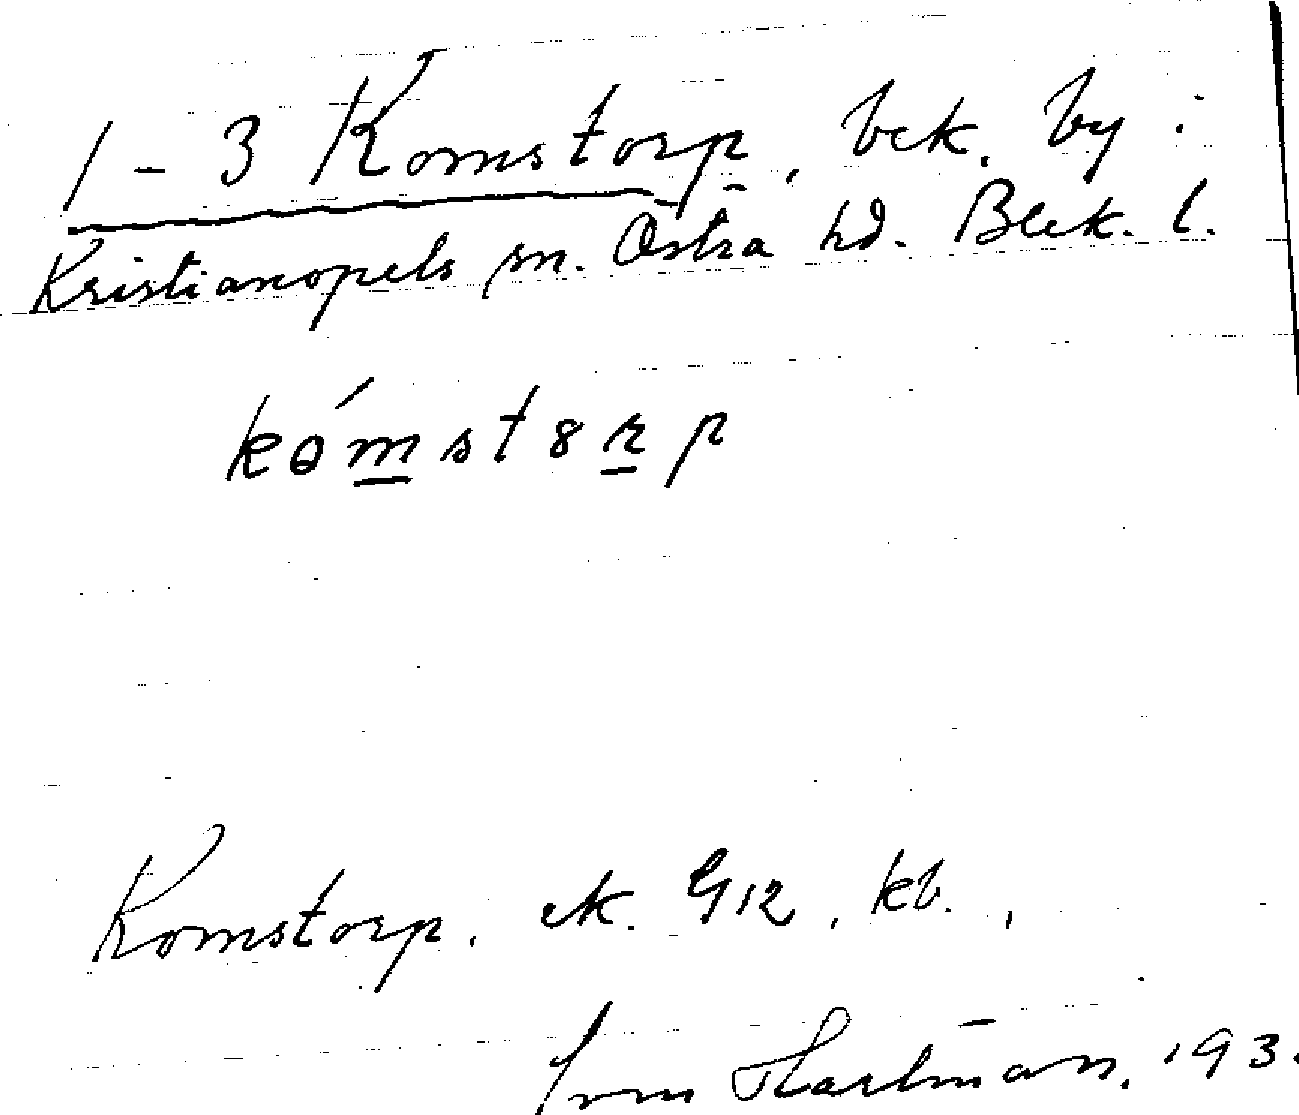 1-3 Komstorp, bek. by:
Kristianopels sn. Östra hd. Blek. l.
kómst8rp
Komstorp, ek. G12, kb.,
Hartman, 193.